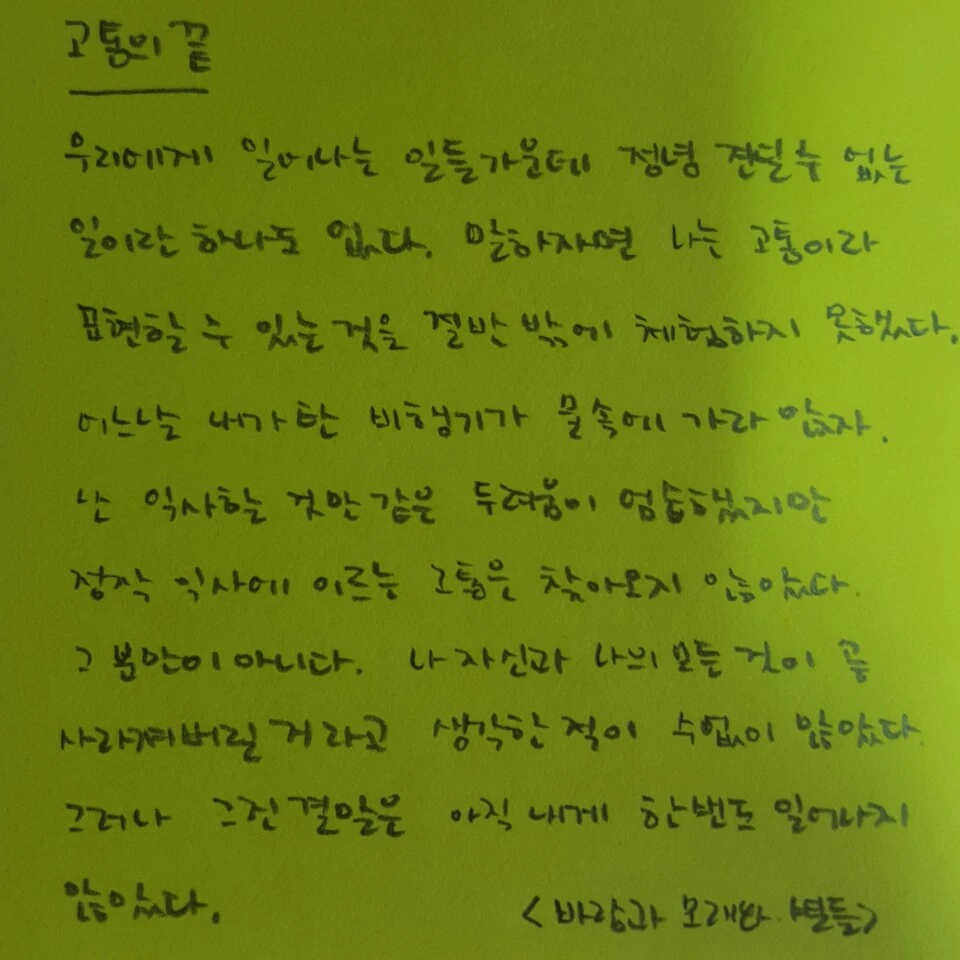 고통의 끝
우리에게 일어나는 일들가운데 정녕 견딜수 없는
일이란 하나도 없다. 말하자면 나는 고통이라
표현할 수 있는 것을 절반 밖에 체험하지 못했다.
어느날 내가 탄 비행기가 물속에 가라 앉자.
난 익사할 것만 같은 두려움이 엄습했지만
정작 익사에 이르는 고통은 찾아오지 않았다.
그 뿐만이 아니다. 나 자신과 나의 모든 것이 곧
사라져버릴 거라고 생각한 적이 수없이 많았다
그러나 그런 결말은 아직 내게 한번도 일어나지
않았다.
<바람과 모래와 별들>